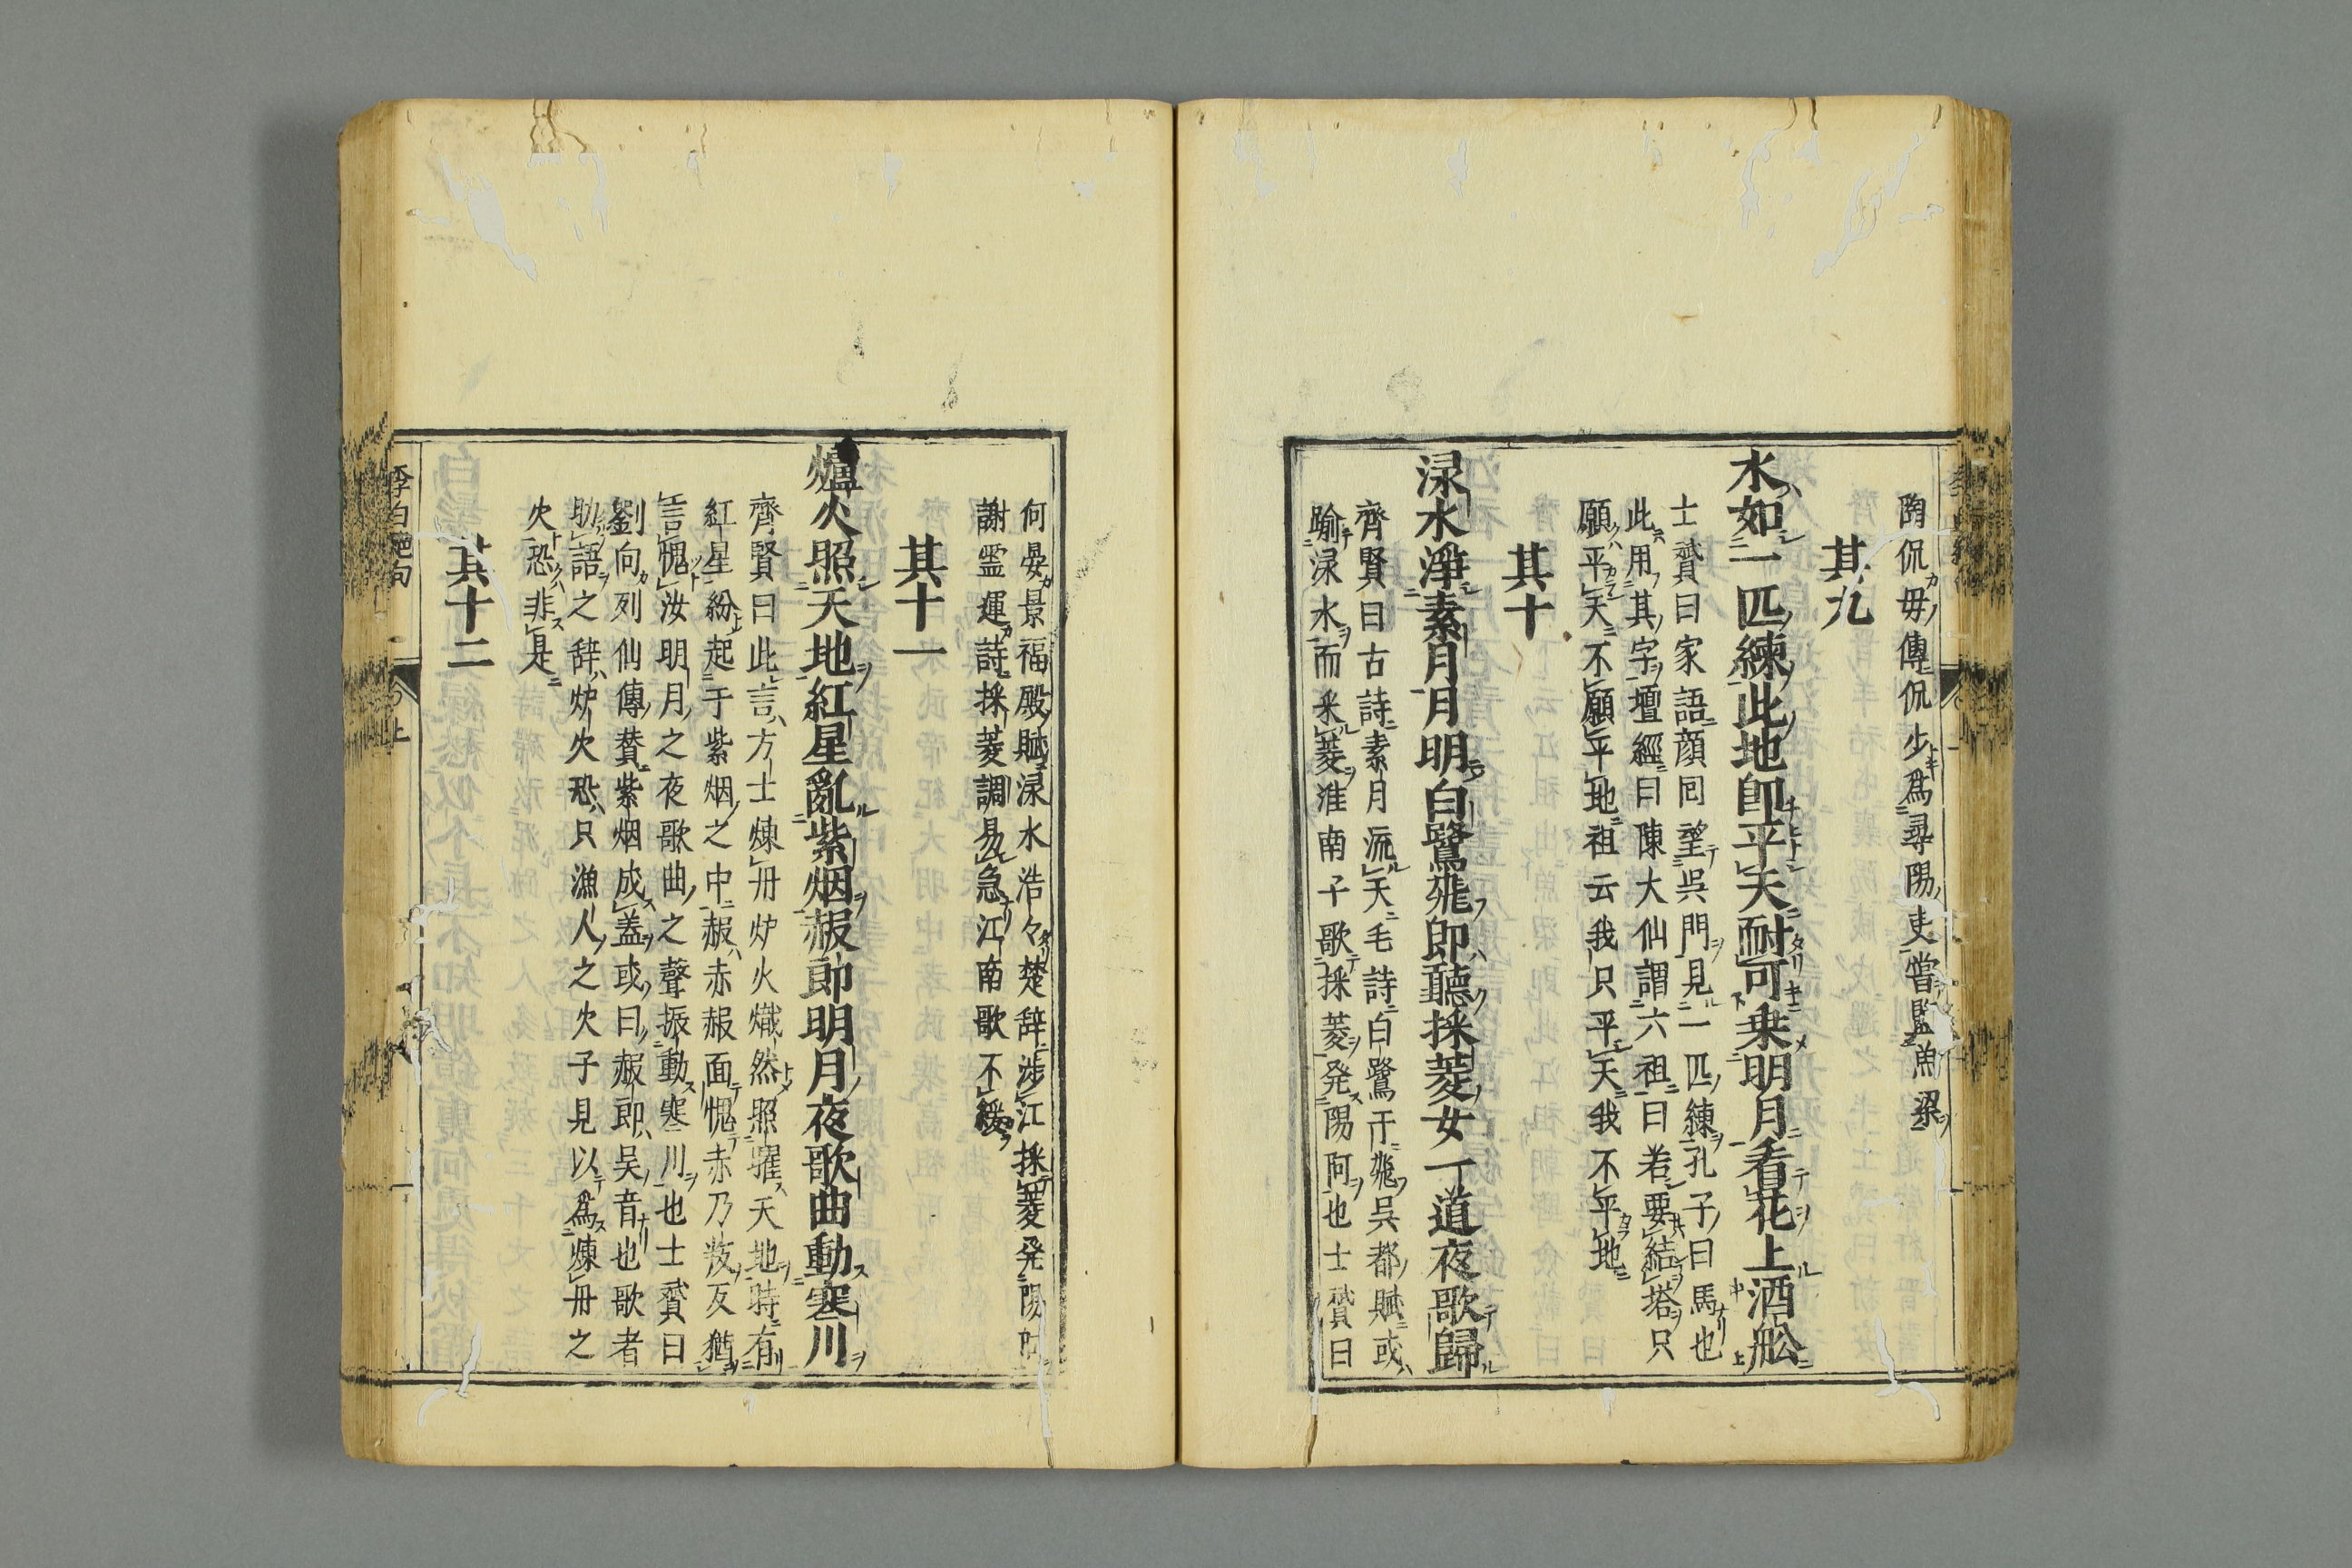 陶侃毋傳侃少爲尋陽吏嘗監魚梁
其九
水如一匹練此地即平天耐可乗明月看花上酒舩
士贇曰家語顔囘望呉門見一匹練孔子曰馬也
此用其字壇經曰陳大仙謂六祖曰若要結塔只
願平天不願平地祖云我只平天我不平地
其十
渌水淨素月月明白鷺飛郎聽採菱女一道夜歌歸
齊賢曰古詩素月流天毛詩白鷺于飛呉都賦或
踰渌水而采菱淮南子歌採菱発陽阿也士贇曰
何晏景福殿賦渌水浩々楚辞渉江採菱発陽
謝霊運詩採菱調易急江南歌不緩
其十一
爐火照天地紅星亂紫烟赧郎明月夜歌曲動寒川
齊賢曰此言方士煉丹炉火熾然照耀天地時有
紅星紛起于紫烟之中赧赤赧面愧赤乃板反猶
言愧汝明月之夜歌曲之聲振動寒川也士贇曰
劉向列仙傳賛紫烟成蓋或曰赧郎呉音也歌者
助語之辞炉火恐只漁人之火子見以爲煉丹之
火恐非是
其十二
李白絶句
上